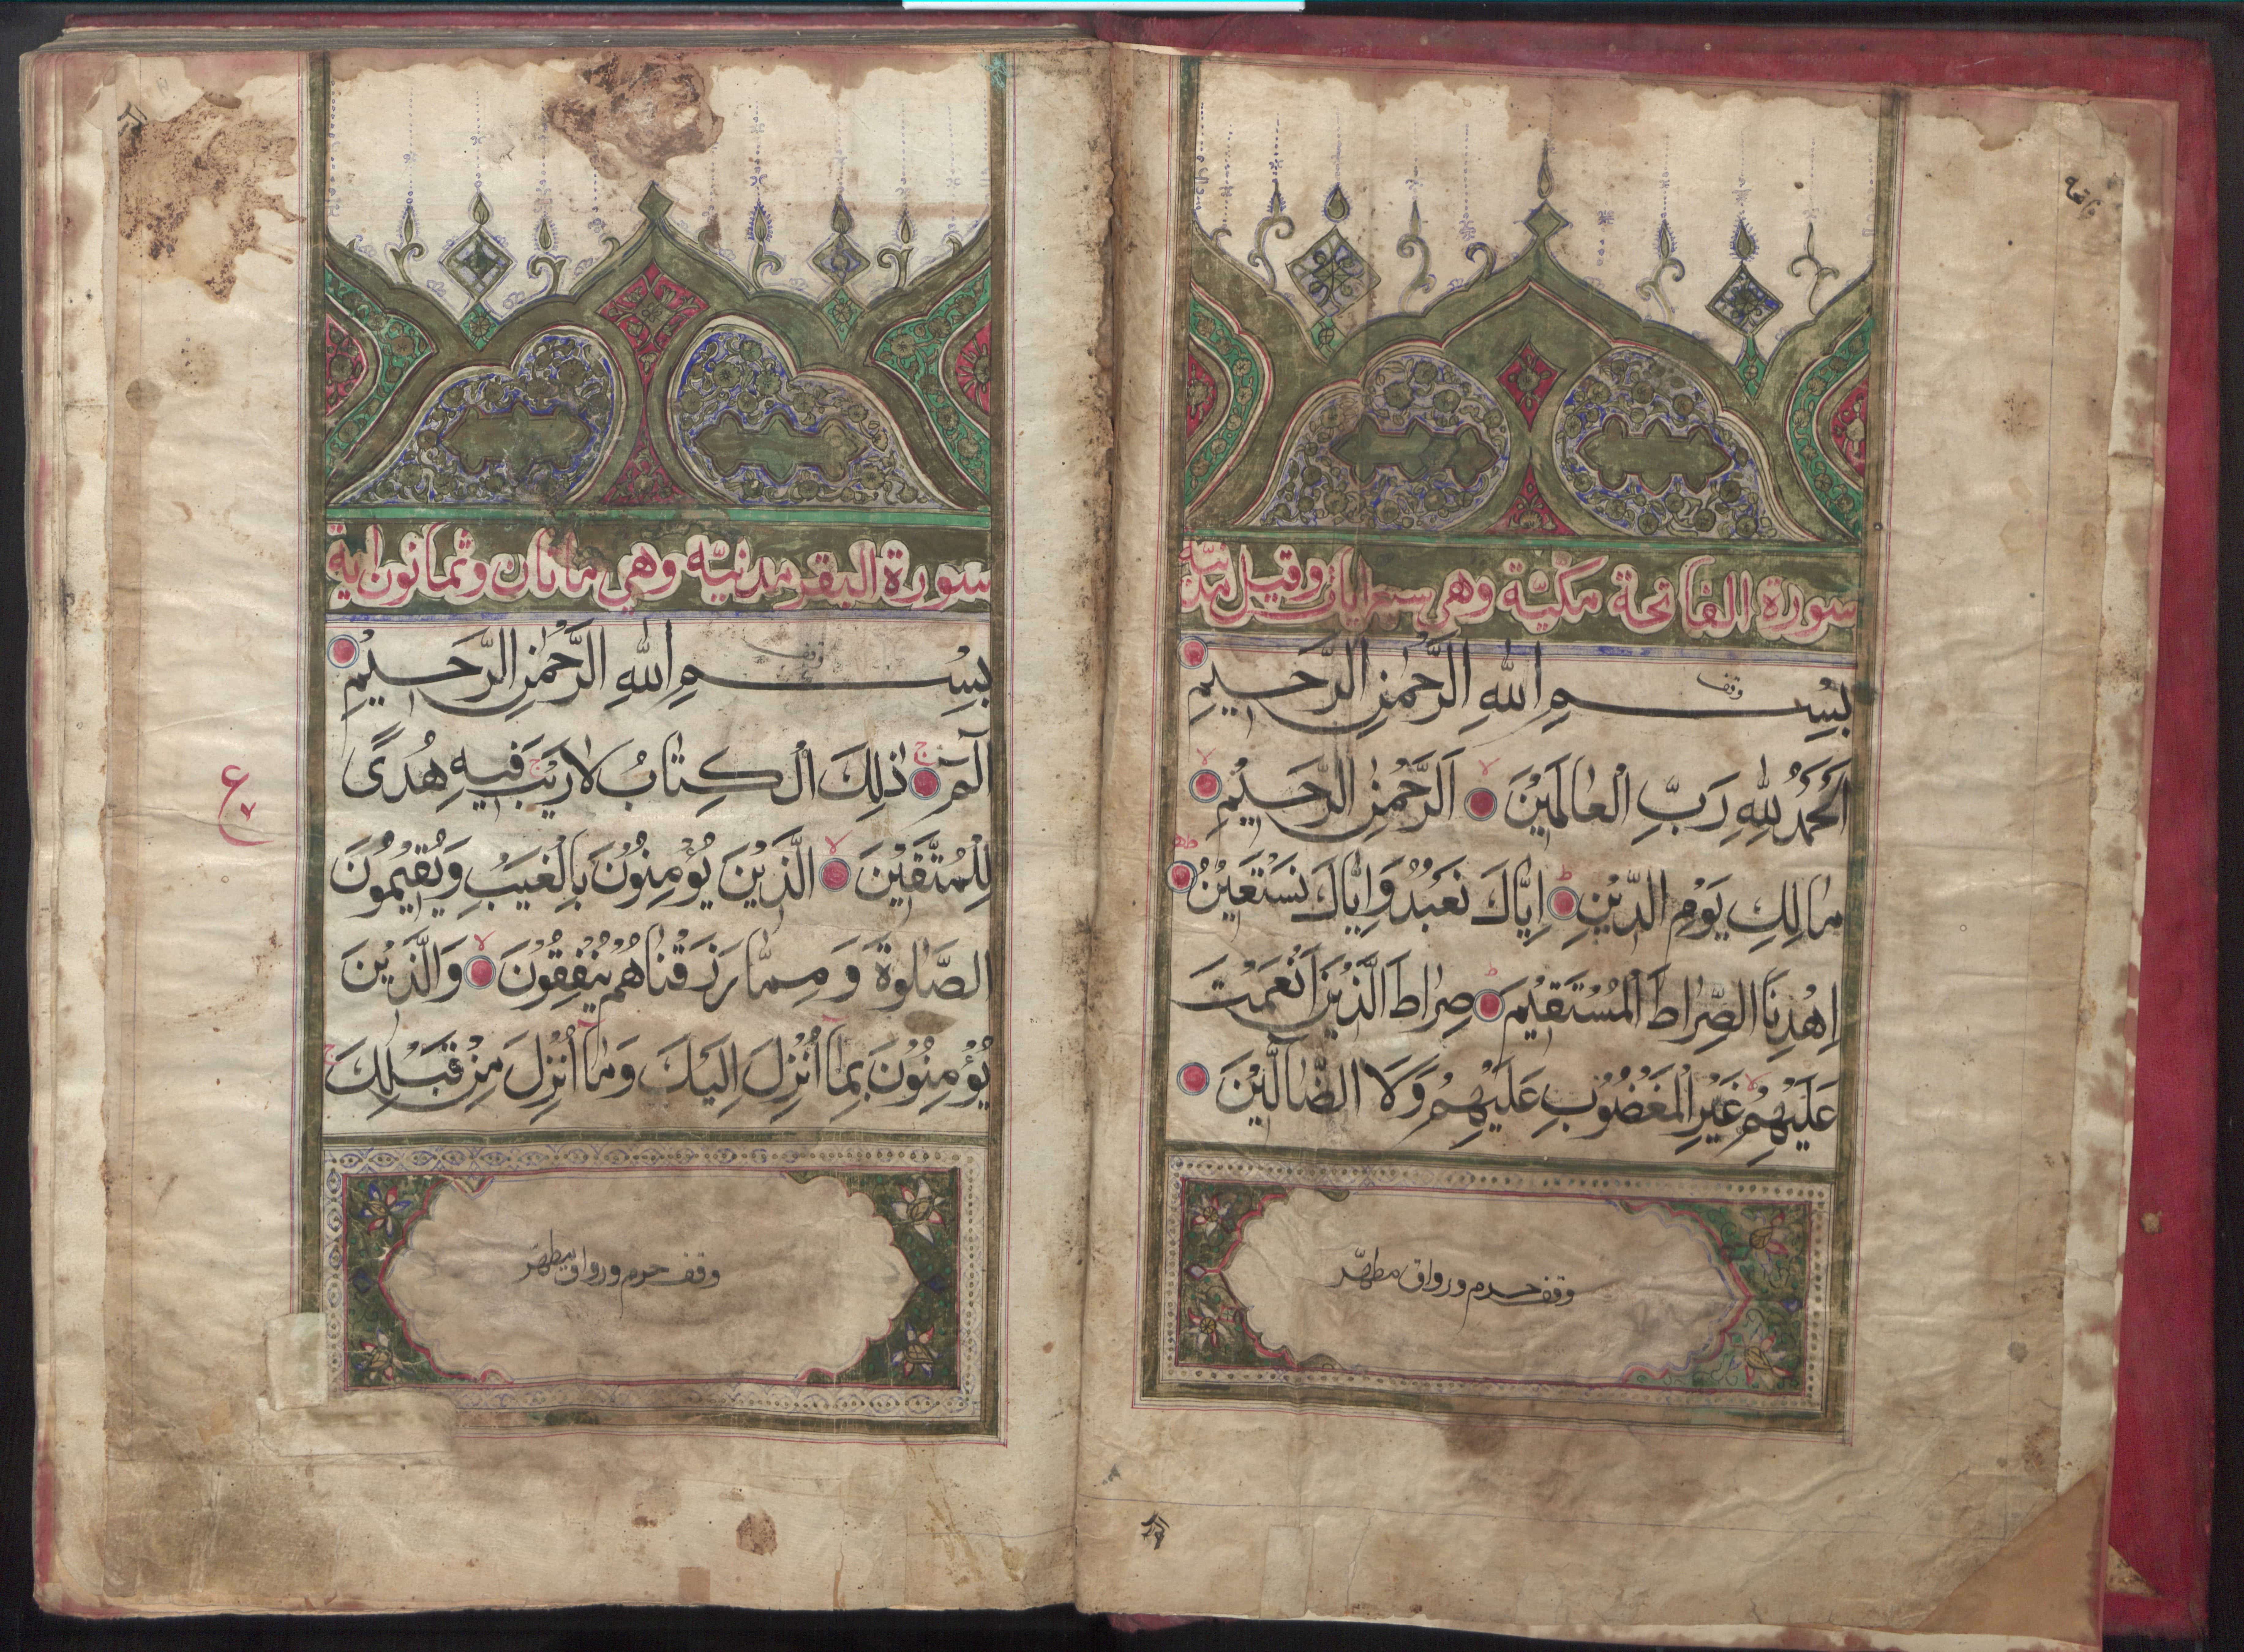 سورة الفاتحة مكيّة وهي سبع ايات وقيل مدنيّه
بِسْــمِ اللّٰهِ الرَّحْمٰنِ الرَّحيمِ
وقف
اَلْحَمْدُ لِلّٰهِ رَبِّ الْعالَميْنَ لا اَلرَّحْمٰنِ الرَّحيْمِ لا
مٰالِكِ يَوْمِ الدّيْنِ ط اِيّٰاكَ نَعْبُدُ وَاِيّٰاكَ نَسْتَعيْنُ ط
اِهْدِنَا الصِّرٰاطَ الْمُسْتَقيْمَ ط صِرٰاطَ الَّذيْنَ اَنْعَمْتَ
عَلَيْهِمْ لا غَيْرِ الْمَغْضُوْبِ عَلَيْهِمْ وَلَا الضّٰالّيْنَ
وقف حرم ورواق مطهّر
سورة البقر مدنيّه وهي ماتان وثمانون اية
بِسْــمِ اللّٰهِ الرَّحْمٰنِ الرَّحيْمِ
وقف
الٓمٓ ج ذٰلِكَ الْكِتٰابُ لا رَيْبَ ج فيهِ هُدًى
لِلْمُتَّقيْنَ لا الَّذيْنَ يُؤْمِنُوْنَ بِالْغَيْبِ وَيُقيْمُونَ
الصَّلٰوةَ وَمِمّٰا رَزَقْنٰاهُمْ يُنْفِقُوْنَ لا وَالَّذيْنَ
يُؤْمِنُوْنَ بِمٰا اُنْزِلَ اِلَيْكَ وَمٰا اُنْزِلَ مِنْ قَبْلِكَ ج
ع
٧
وقف حرم ورواق مطهّر